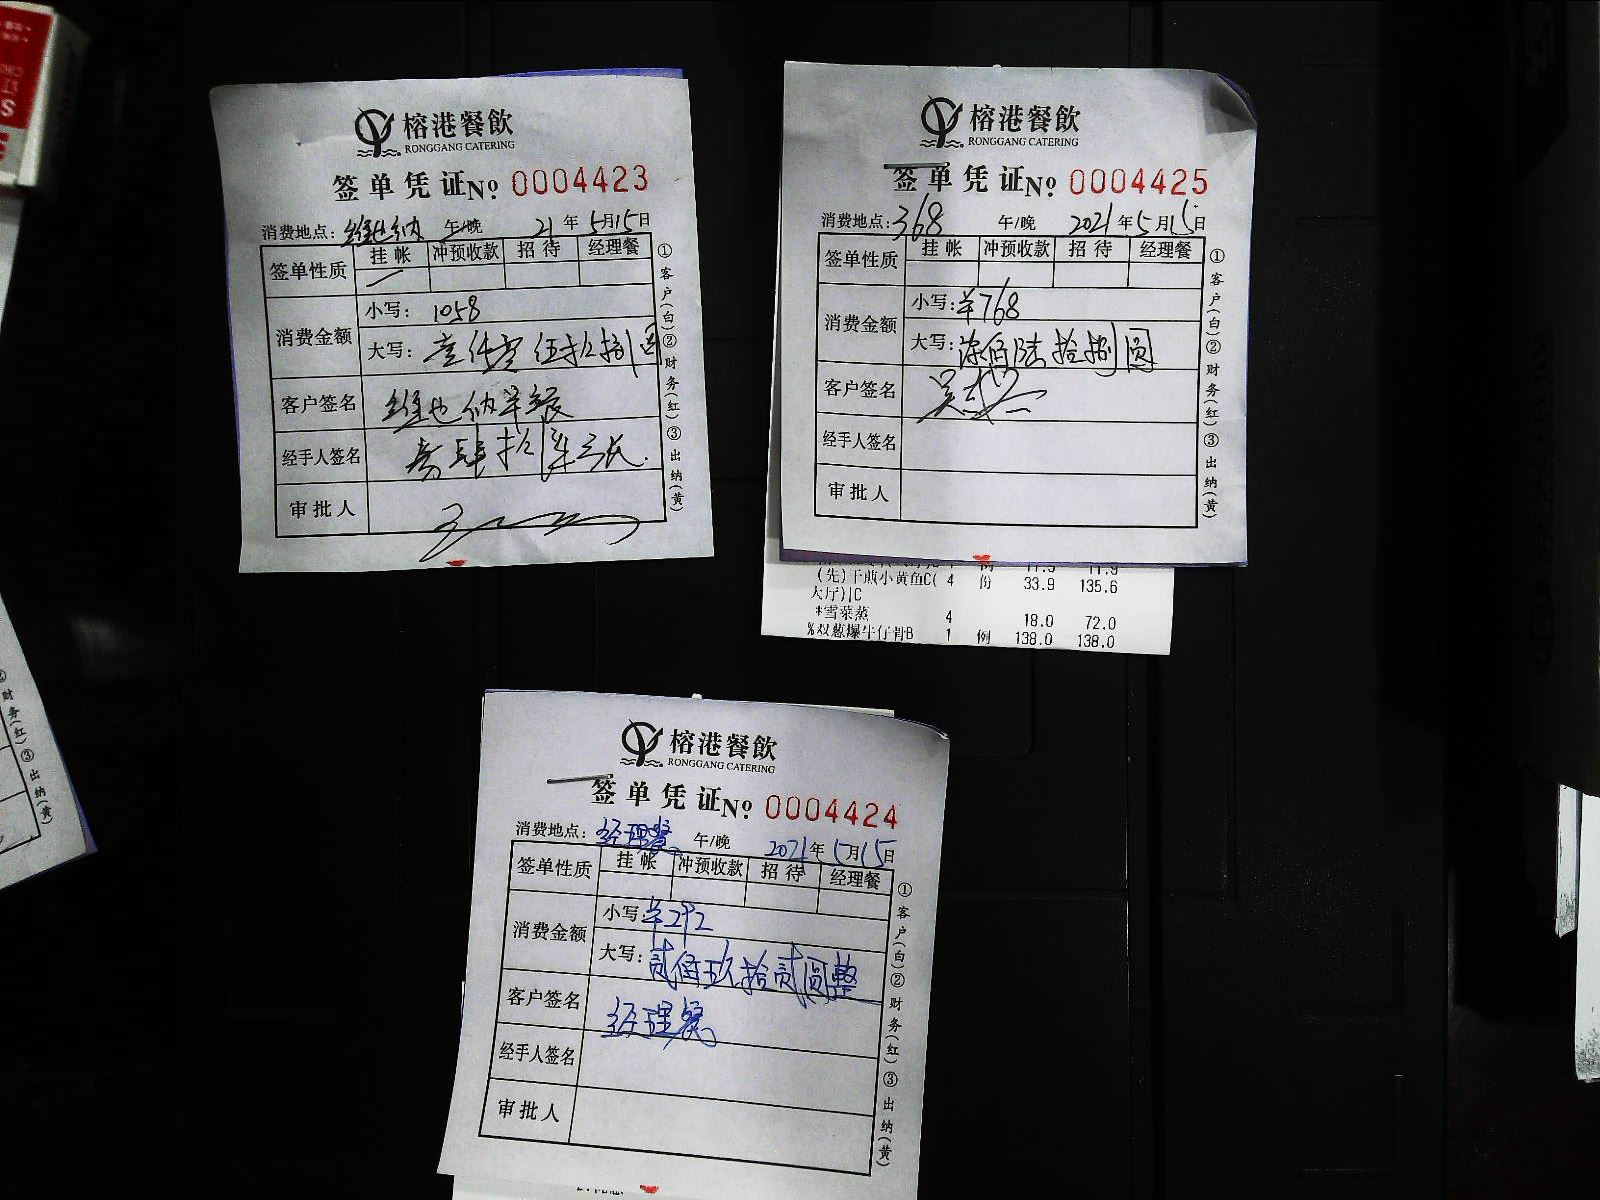 榕港餐飲
RONGGANG CATERING
签单凭证 № 0004423
消费地点: 维也纳 午/晚 21年5月15日
签单性质 挂帐 冲预收款 招待 经理餐
消费金额 小写: 1058
大写: 壹仟零伍拾捌圆
客户签名 维也纳早餐
经手人签名
审批人
①客户(白)②财务(红)③出纳(黄)
榕港餐飲
RONGGANG CATERING
签单凭证 № 0004425
消费地点: 368 午/晚 2021年5月15日
签单性质 挂帐 冲预收款 招待 经理餐
消费金额 小写: ¥768
大写: 柒佰陆拾捌圆
客户签名
经手人签名
审批人
①客户(白)②财务(红)③出纳(黄)
(先)干煎小黄鱼C( 4 份 33.9 135.6
大厅)|C
*雪菜蒸 4 18.0 72.0
%双葱爆牛仔骨B 1 例 138.0 138.0
榕港餐飲
RONGGANG CATERING
签单凭证 № 0004424
消费地点: 经理餐 午/晚 2021年5月15日
签单性质 挂帐 冲预收款 招待 经理餐
消费金额 小写: ¥292
大写: 贰佰玖拾贰圆整
客户签名 经理餐
经手人签名
审批人
①客户(白)②财务(红)③出纳(黄)
财务(红)③出纳(黄)